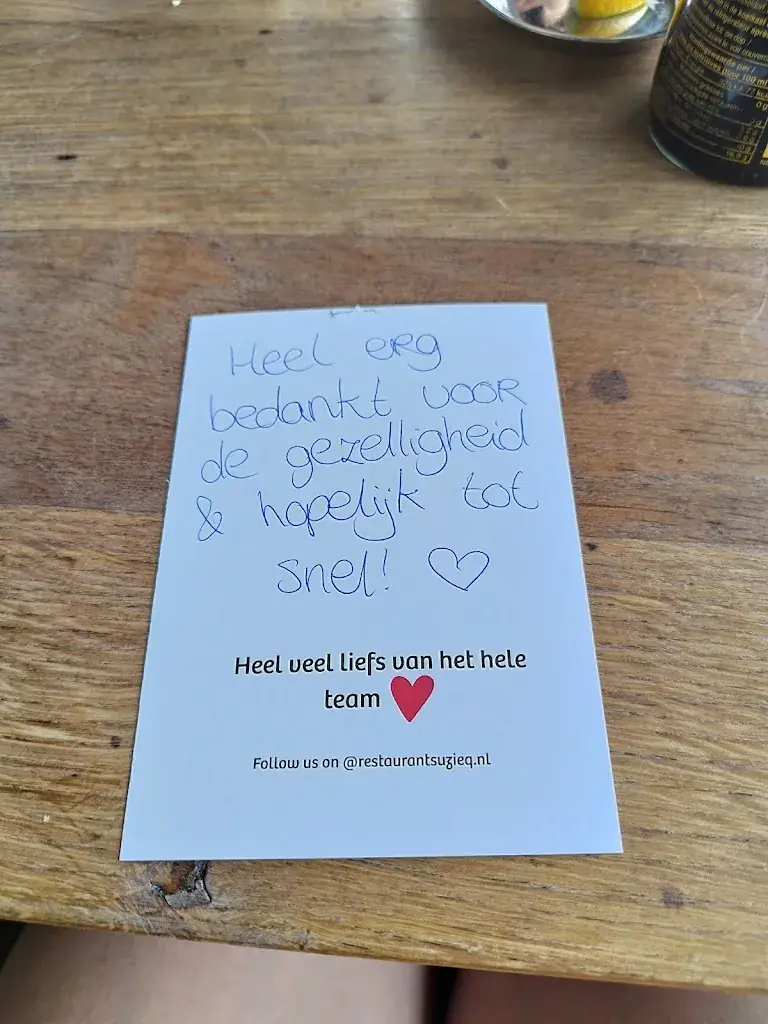 Heel erg
bedankt voor
de gezelligheid
& hopelijk tot
snel! ♡
Heel veel liefs van het hele
team ❤
Follow us on @restaurantsuzieq.nl